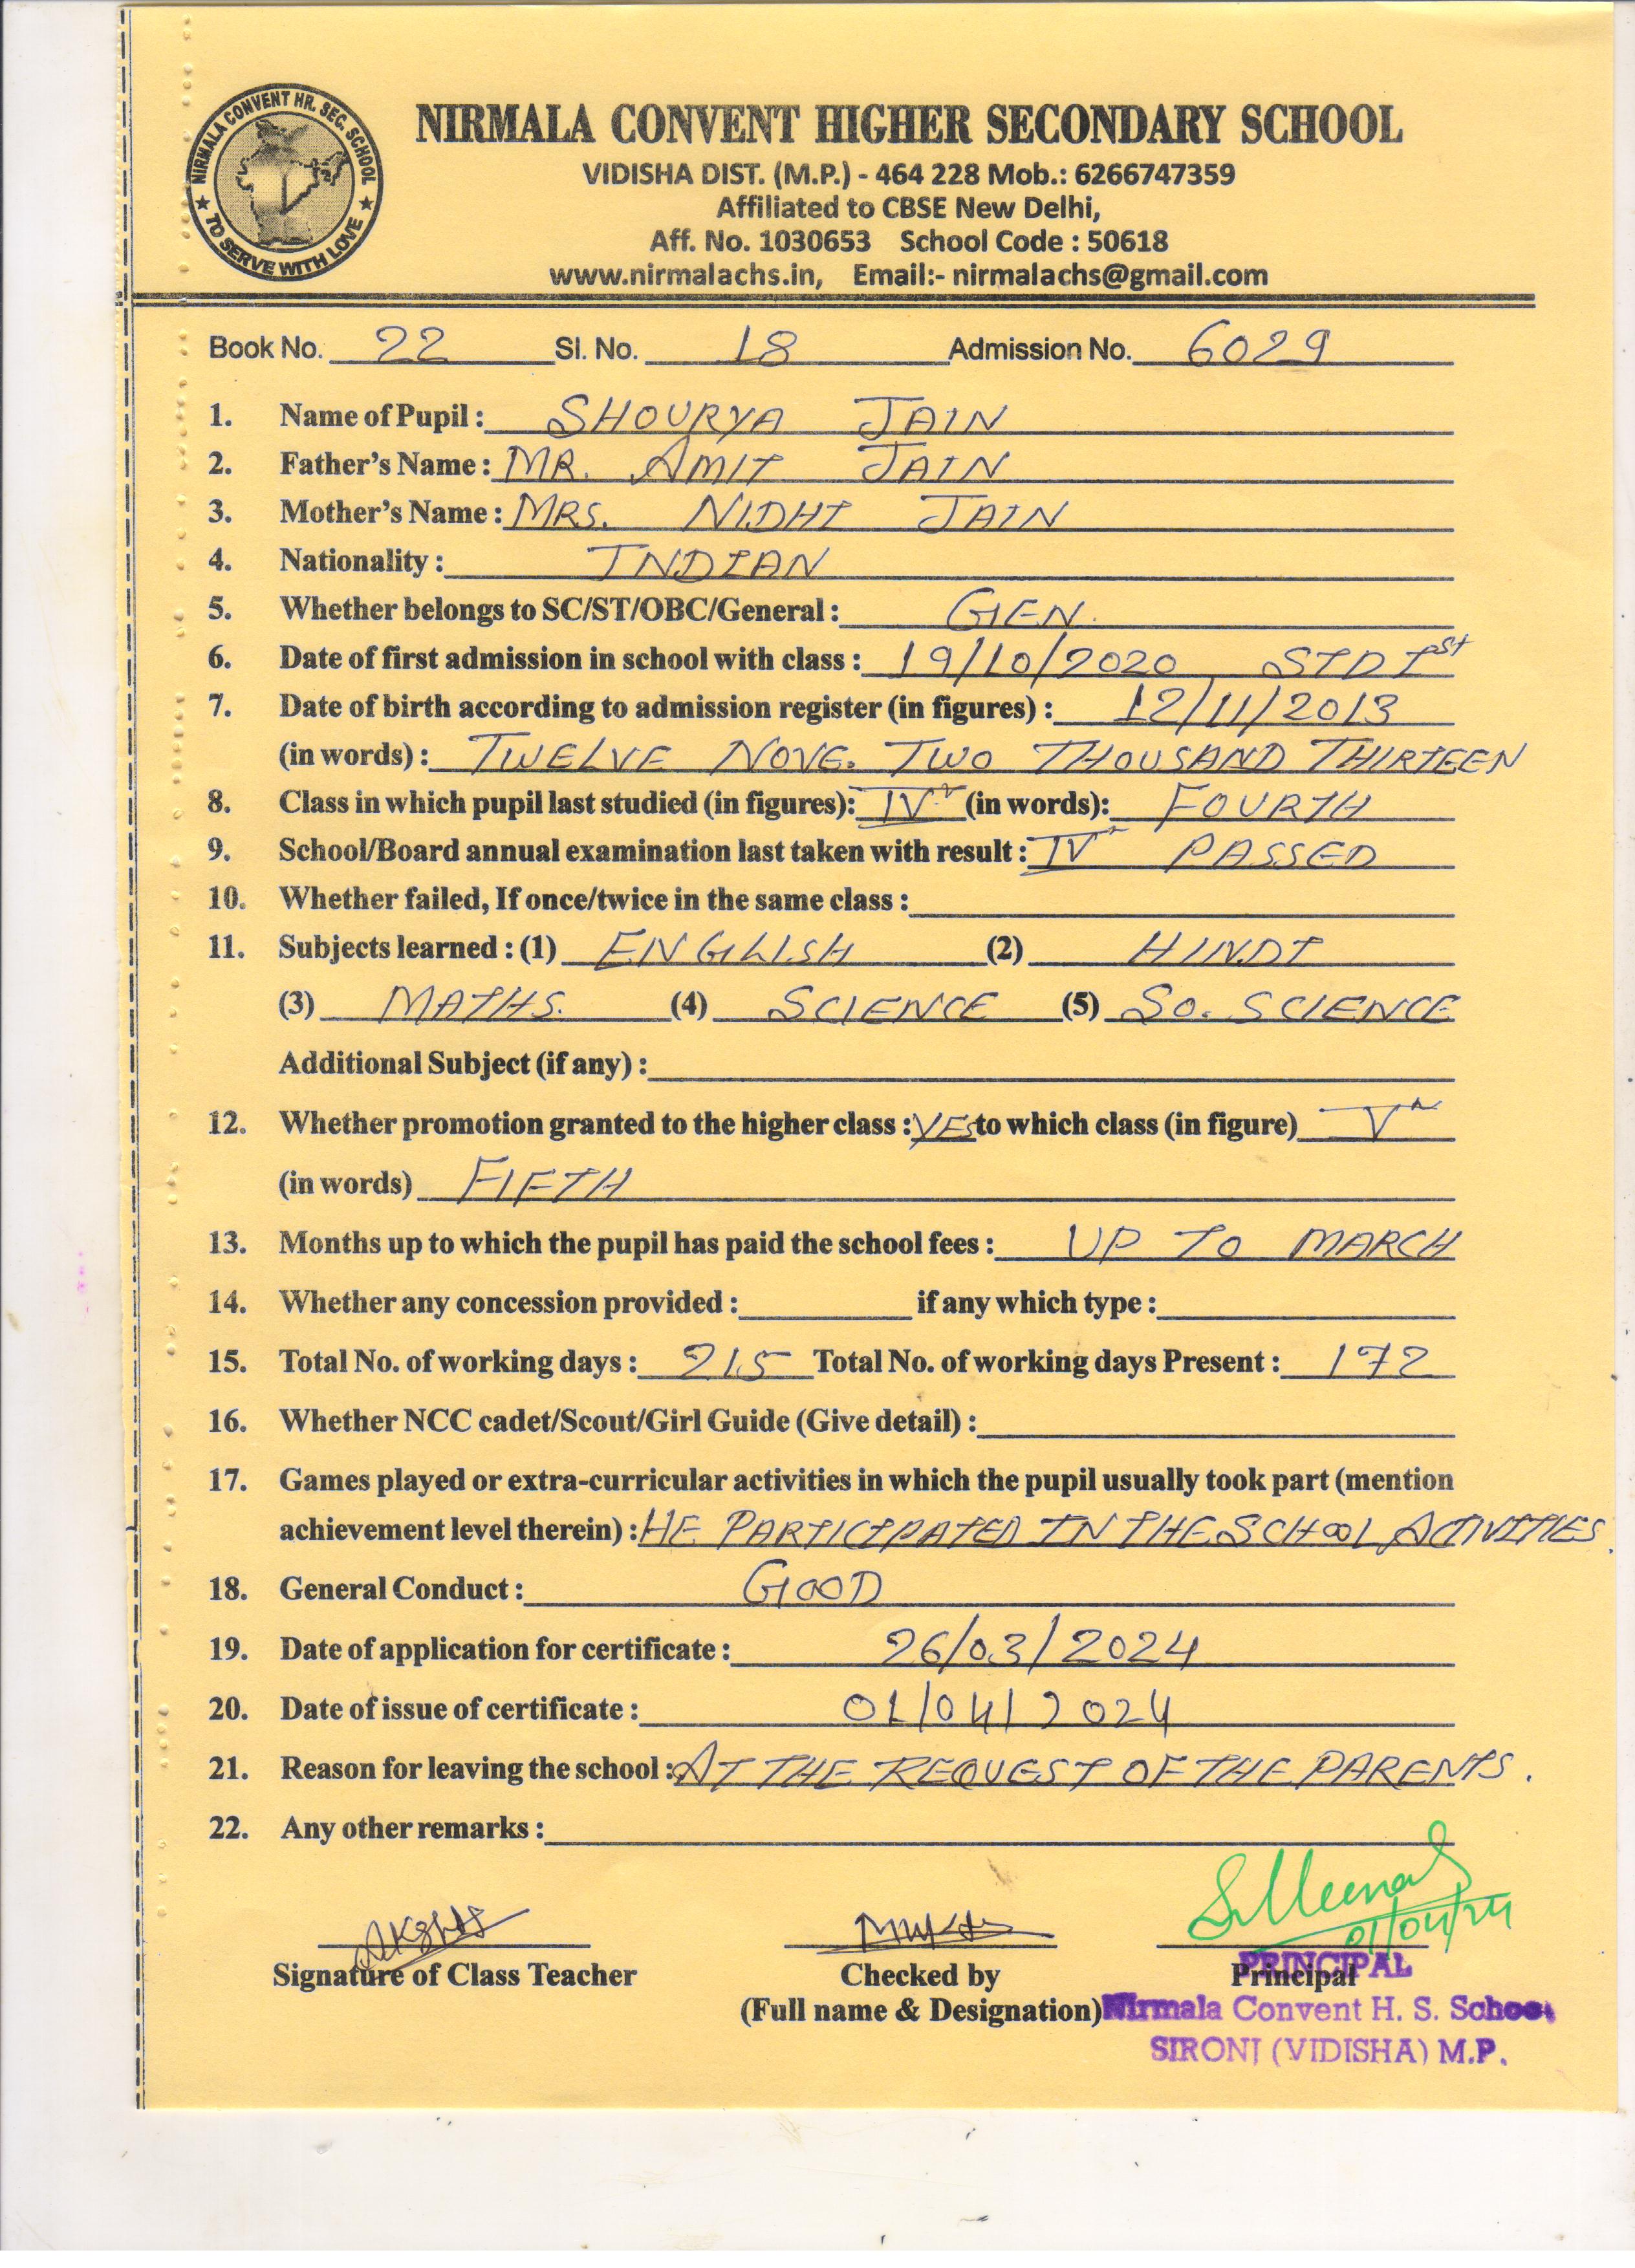 NIRMALA CONVENT HR. SEC. SCHOOL
★ TO SERVE WITH LOVE ★
NIRMALA CONVENT HIGHER SECONDARY SCHOOL
VIDISHA DIST. (M.P.) - 464 228 Mob.: 6266747359
Affiliated to CBSE New Delhi,
Aff. No. 1030653 School Code : 50618
www.nirmalachs.in, Email:- nirmalachs@gmail.com
Book No. 22 Sl. No. 18 Admission No. 6029
1. Name of Pupil : SHOURYA JAIN
2. Father's Name : MR. AMIT JAIN
3. Mother's Name : MRS. NIDHI JAIN
4. Nationality : INDIAN
5. Whether belongs to SC/ST/OBC/General : GEN.
6. Date of first admission in school with class : 19/10/2020 STD Ist
7. Date of birth according to admission register (in figures) : 12/11/2013
(in words) : TWELVE NOVE. TWO THOUSAND THIRTEEN
8. Class in which pupil last studied (in figures): IV (in words): FOURTH
9. School/Board annual examination last taken with result : IV PASSED
10. Whether failed, If once/twice in the same class :
11. Subjects learned : (1) ENGLISH (2) HINDI
(3) MATHS. (4) SCIENCE (5) SO. SCIENCE
Additional Subject (if any) :
12. Whether promotion granted to the higher class : YES to which class (in figure) V
(in words) FIFTH
13. Months up to which the pupil has paid the school fees : UP TO MARCH
14. Whether any concession provided : if any which type :
15. Total No. of working days : 215 Total No. of working days Present : 172
16. Whether NCC cadet/Scout/Girl Guide (Give detail) :
17. Games played or extra-curricular activities in which the pupil usually took part (mention
achievement level therein) : HE PARTICIPATED IN THE SCHOOL ACTIVITIES.
18. General Conduct : GOOD
19. Date of application for certificate : 26/03/2024
20. Date of issue of certificate : 01/04/2024
21. Reason for leaving the school : AT THE REQUEST OF THE PARENTS.
22. Any other remarks :
01/04/24
Signature of Class Teacher Checked by Principal
PRINCIPAL
(Full name & Designation) Nirmala Convent H. S. School
SIRONJ (VIDISHA) M.P.